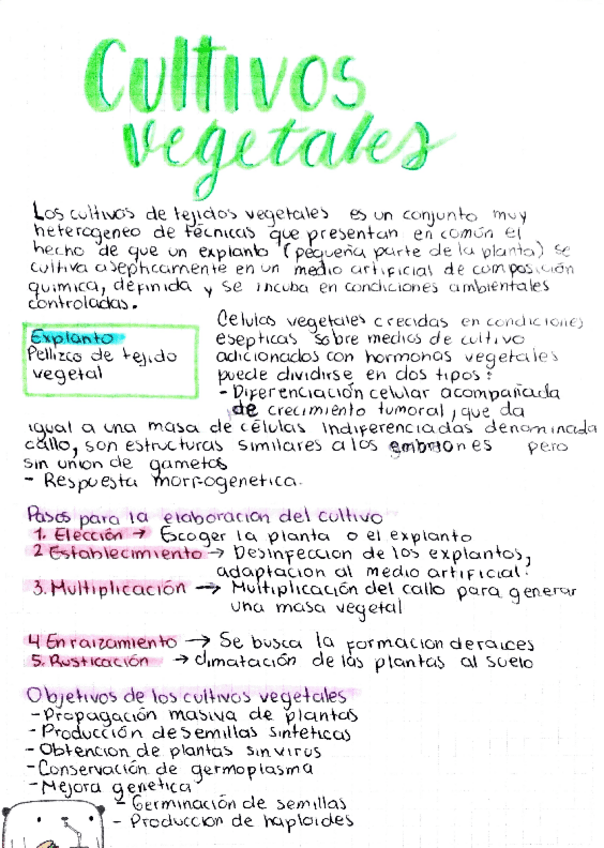 Cultivos
vegetales
Los cultivos de tejidos vegetales es un conjunto muy
heterogeneo de técnicas que presentan en común el
hecho de que un explanto (pequeña parte de la planta) se
cultiva asepticamente en un medio artificial de composición
química, definida y se incuba en condiciones ambientales
controladas.
Explanto
Pellizco de tejido
vegetal
Celulas vegetales crecidas en condiciones
esepticas sobre medios de cultivo
adicionados con hormonas vegetales
puede dividirse en dos tipos:
- Diferenciación celular acompañada
de crecimiento tumoral, que da
igual a una masa de células indiferenciadas denominada
callo, son estructuras similares a los embriones pero
sin union de gametos
- Respuesta morfogenetica.
Pasos para la elaboracion del cultivo
1. Elección → Escoger la planta o el explanto
2 Establecimiento → Desinfeccion de los explantos,
adaptacion al medio artificial.
3. Multiplicación → Multiplicación del callo para generar
una masa vegetal
4 Enraizamiento → Se busca la formacion de raices
5. Rusticación → climatación de las plantas al suelo
Objetivos de los cultivos vegetales
- Propagación masiva de plantas
- Producción de semillas sinteticas
- Obtencion de plantas sin virus
- Conservación de germoplasma
- Mejora genetica
- Germinación de semillas
- Produccion de haploides